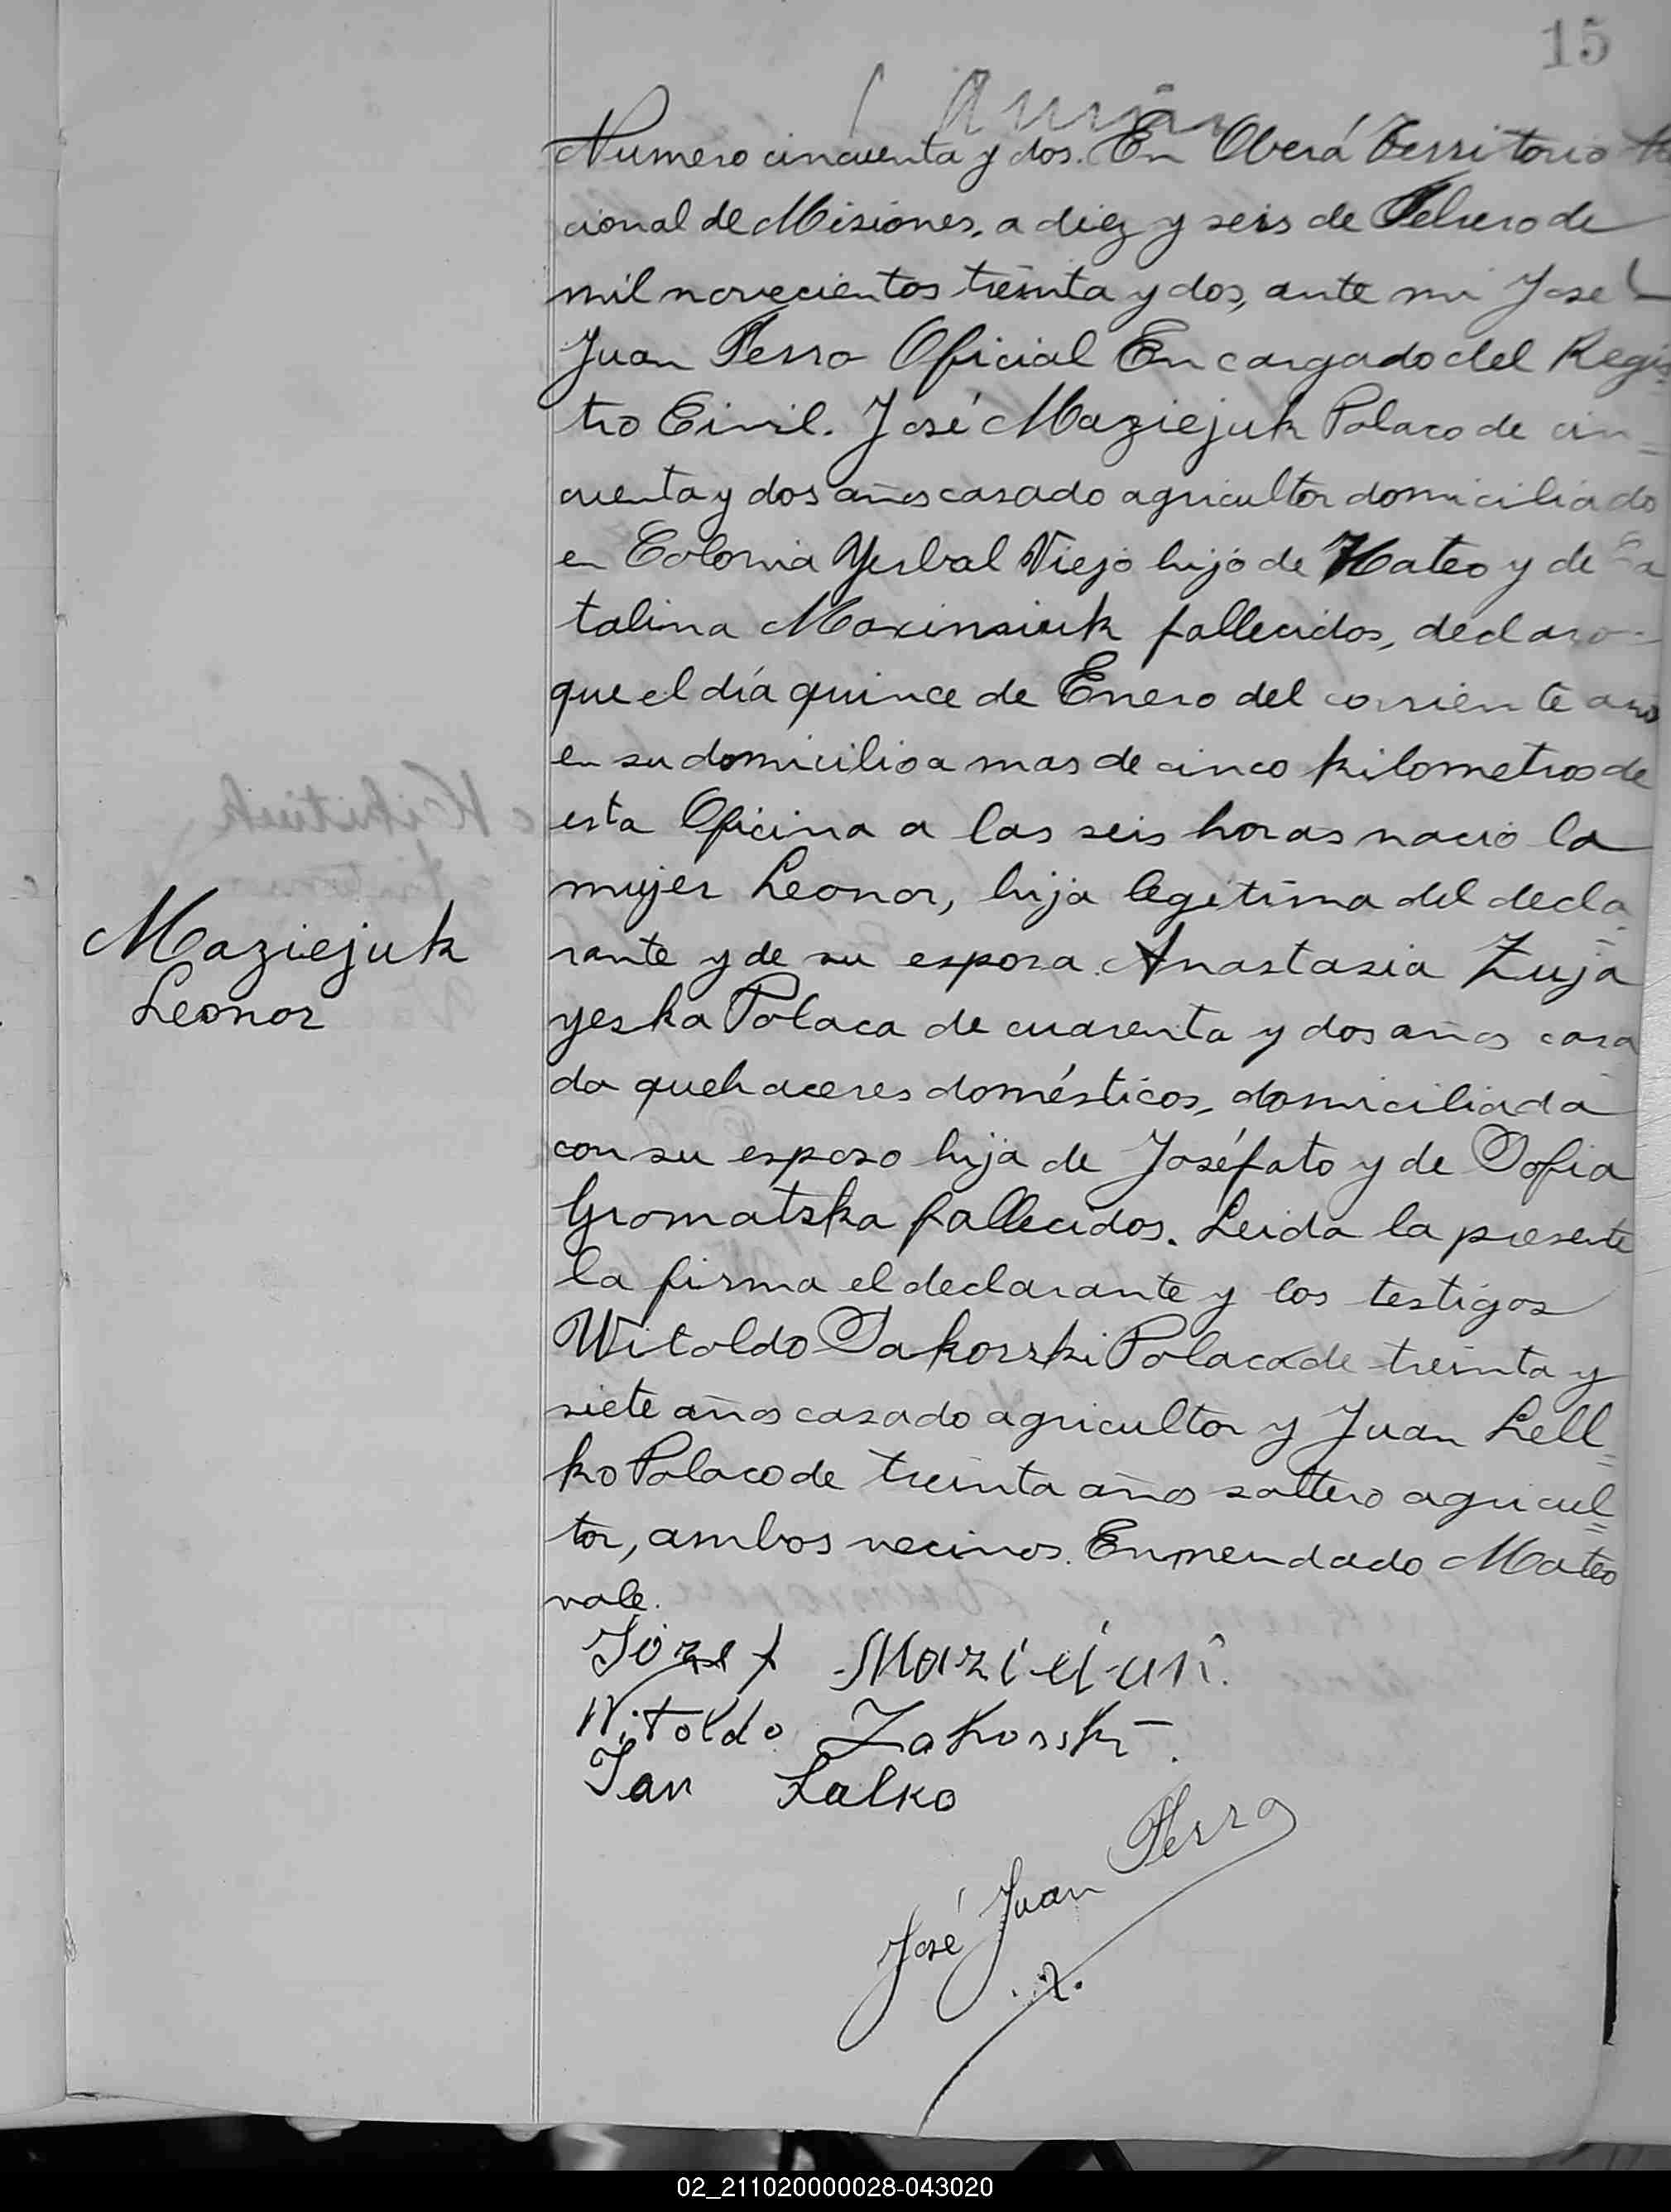 15
Numero cincuenta y dos. En Oberá Territorio
cional de Misiones, a diez y seis de Febrero de
mil novecientos treinta y dos, ante mi Jose
Juan Ferro Oficial Encargado del Regis
tro Civil. José Maziejuk Polaco de cin=
cuenta y dos años casado agricultor domiciliado
en Colonia Yerbal Viejo hijo de Mateo y de Ca
talina Moxinsiuk fallecidos, declaro=
que el día quince de Enero del corriente año
en su domicilio a mas de cinco kilometros de
esta Oficina a las seis horas nació la
mujer Leonor, hija legitima del decla=
rante y de su esposa Anastasia Zuja
yeska Polaca de cuarenta y dos años casa
da quehaceres domésticos, domiciliada
con su esposo hija de Joséfato y de Sofia
Gromatska fallecidos. Leida la presente
la firma el declarante y los testigos
Witoldo Sakorski Polaco de treinta y
siete años casado agricultor y Juan Lell=
ko Polaco de treinta años soltero agricul=
tor, ambos vecinos. Enmendado Mateo
vale.
Maziejuk
Leonor
Józef
Witoldo Zakorski.
Jan Lalko
José Juan Ferro
02_211020000028-043020